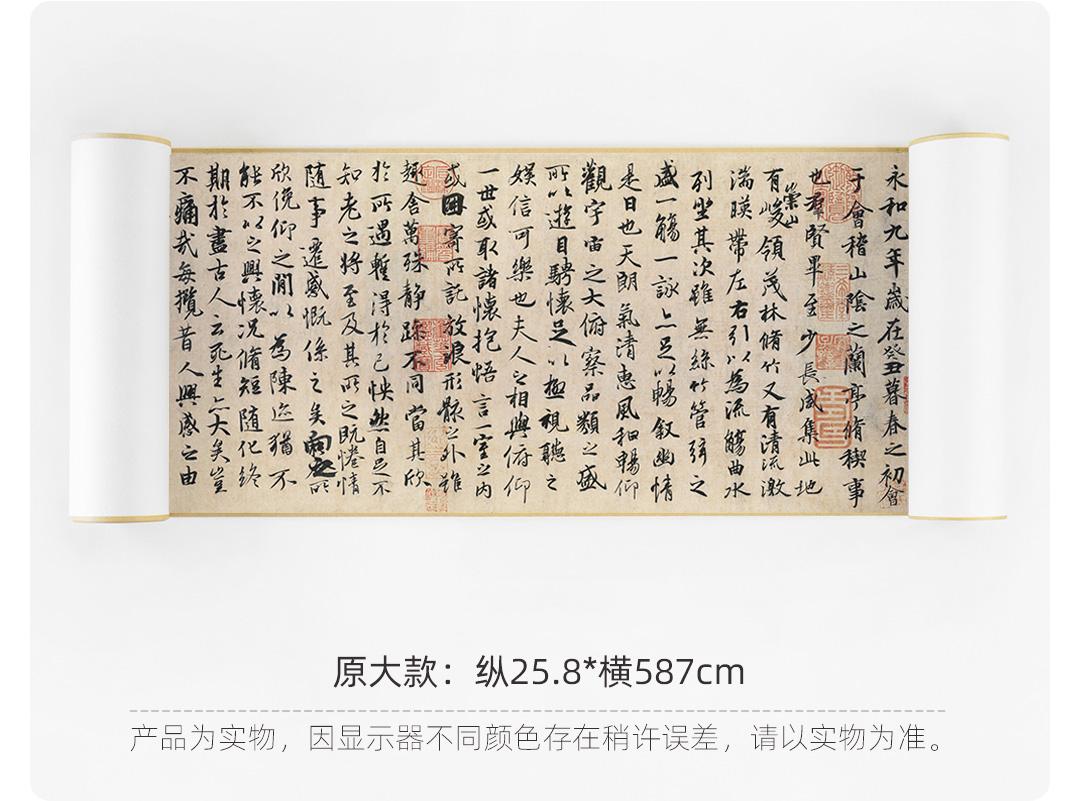 永和九年歲在癸丑暮春之初會
于會稽山陰之蘭亭脩稧事
也群賢畢至少長咸集此地
有崇山峻領茂林脩竹又有清流激
湍暎帶左右引以為流觴曲水
列坐其次雖無絲竹管弦之
盛一觴一詠亦足以暢敘幽情
是日也天朗氣清惠風和暢仰
觀宇宙之大俯察品類之盛
所以遊目騁懷足以極視聽之
娛信可樂也夫人之相與俯仰
一世或取諸懷抱悟言一室之內
或因寄所託放浪形骸之外雖
趣舍萬殊靜躁不同當其欣
於所遇暫得於己怏然自足不
知老之將至及其所之既惓情
隨事遷感慨係之矣向之所
欣俛仰之間以為陳迹猶不
能不以之興懷況脩短隨化終
期於盡古人云死生亦大矣豈
不痛哉每攬昔人興感之由
原大款：纵25.8*横587cm
产品为实物，因显示器不同颜色存在稍许误差，请以实物为准。